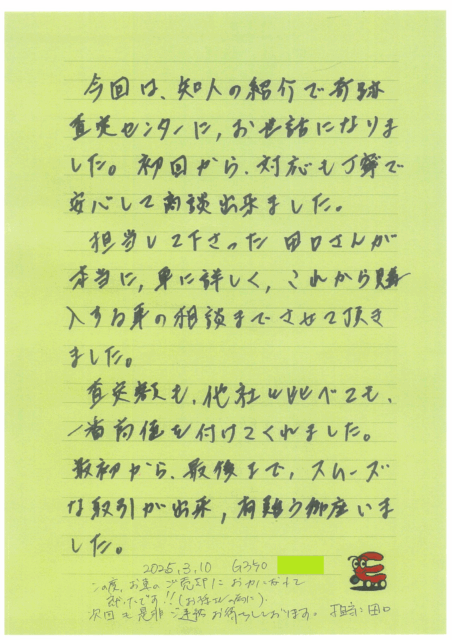 今回は、知人の紹介で買取
査定センターに、お世話になりま
した。初回から、対応も丁寧で
安心して商談出来ました。
担当して下さった田口さんが
本当に、車に詳しく、これから購
入する車の相談までさせて頂き
ました。
査定額も、他社と比べても、
一番高値を付けてくれました。
最初から、最後まで、スムーズ
な取引が出来、有難う御座いま
した。
2025.3.10 G350
この度、お車のご売却におかれまして
です!!(お
次回も是非ご連絡お待ちしております。担当:田口